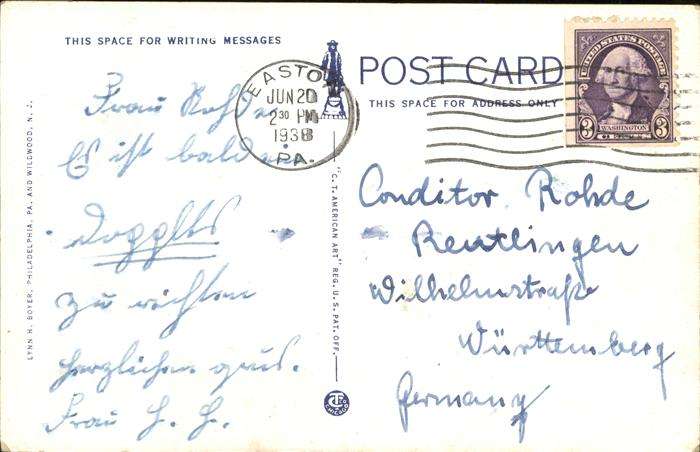 THIS SPACE FOR WRITING MESSAGES
Frau Rohde
Es ist balde
Doppltes
zu richten
herzlichen grus.
Frau H. H.
LYNN H. BOYER, PHILADELPHIA, PA. AND WILDWOOD, N. J.
"C. T. AMERICAN ART" REG. U. S. PAT. OFF.
CT
CHICAGO
EASTON
JUN 20
2 30 PM
1938
PA.
POST CARD
THIS SPACE FOR ADDRESS ONLY
UNITED STATES POSTAGE
3 WASHINGTON 3
CENTS
Conditor Rohde
Reutlingen
Wilhelmstraße
Württemberg
Germany